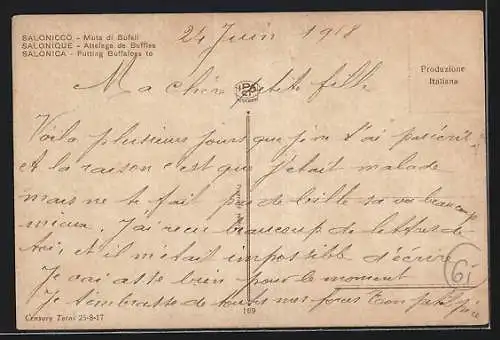 SALONICCO - Muta di Bufali
SALONIQUE - Attelage de Buffles
SALONICA - Putting Buffaloes to
24 Juin 1918
Produzione
Italiana
Ma chère petite fille
Voila plusieurs jours que je ne t'ai pas écrit
et la raison c'est que j'était malade
mais ne te fait pas de bille sa va beaucoup
mieux. J'ai reçu beaucoup de lettres de
toi, et il m'était impossible d'écrire
Je vai asse bien pour le moment
Je t'embrasse de toutes mes forces Ton petit père
61
Censura Torni 25-8-17
169